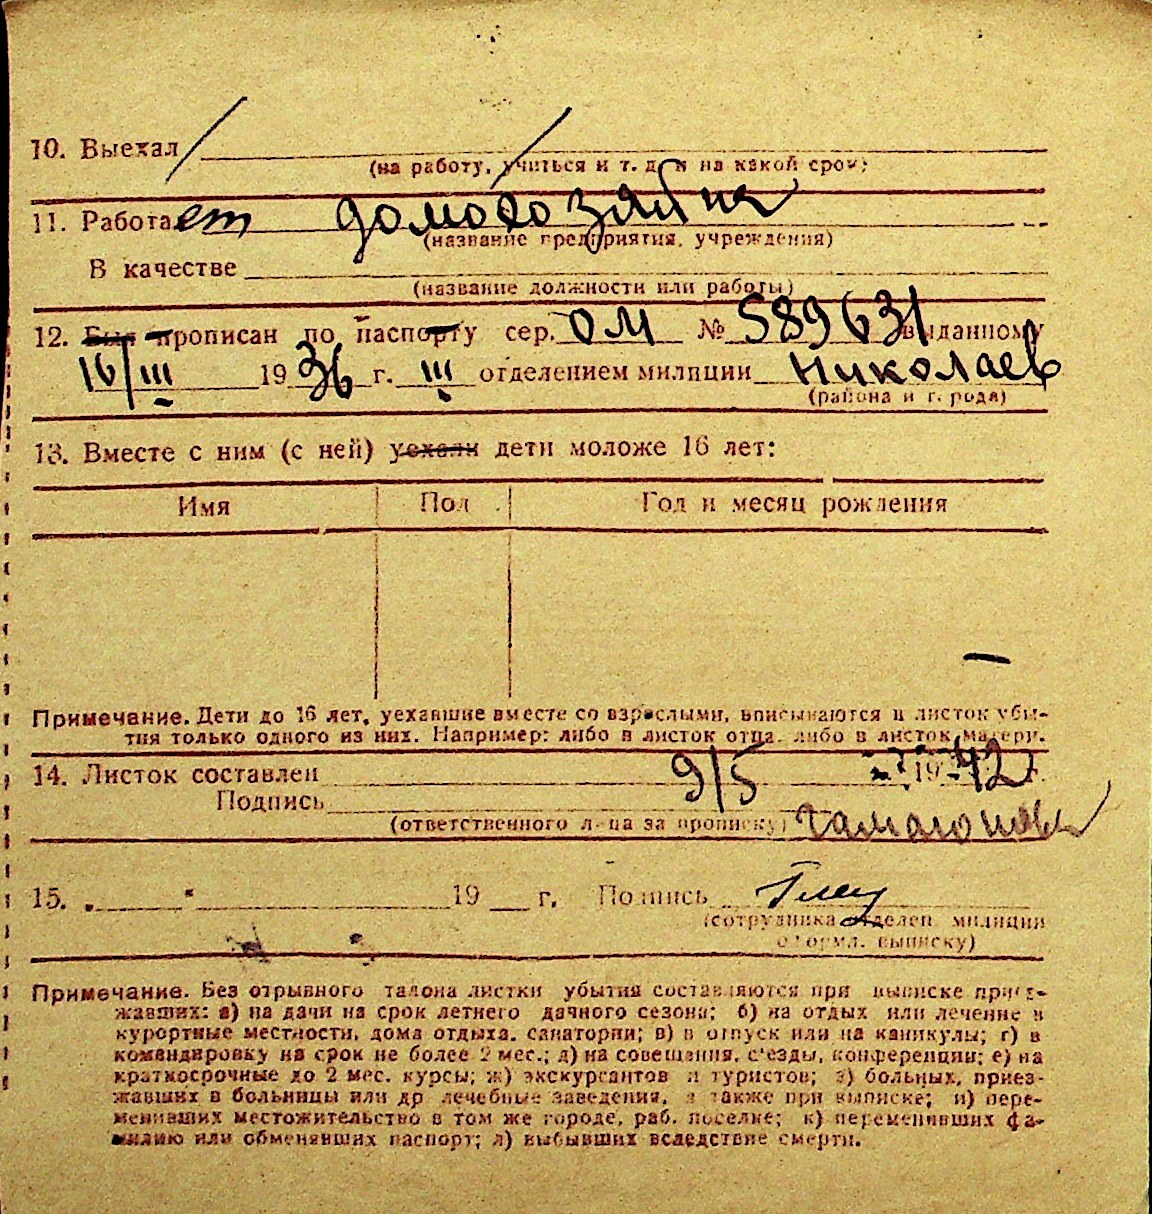 10. Выехал
(на работу, учиться и т. д. и на какой срок)
11. Работает домохозяйка
(название предприятия, учреждения)
В качестве
(название должности или работы)
12. Был прописан по паспорту сер. ОМ № 589631 выданному
16/III 1936 г. III отделением милиции Николаев
(района и города)
13. Вместе с ним (с ней) уехали дети моложе 16 лет:
Имя Пол Год и месяц рождения
Примечание. Дети до 16 лет, уехавшие вместе со взрослыми, вписываются в листок убы-
тия только одного из них. Например: либо в листок отца, либо в листок матери.
14. Листок составлен 9/5 1942 г.
Подпись
(ответственного лица за прописку)
15. 19 г. Подпись
(сотрудника отделен. милиции
оформл. выписку)
Примечание. Без отрывного талона листки убытия составляются при выписке приез-
жавших: а) на дачи на срок летнего дачного сезона; б) на отдых или лечение в
курортные местности, дома отдыха, санатории; в) в отпуск или на каникулы; г) в
командировку на срок не более 2 мес.; д) на совещания, с'езды, конференции; е) на
краткосрочные до 2 мес. курсы; ж) экскурсантов и туристов; з) больных, приез-
жавших в больницы или др лечебные заведения, а также при выписке; и) пере-
менивших местожительство в том же городе, раб. поселке; к) переменивших фа-
милию или обменявших паспорт; л) выбывших вследствие смерти.